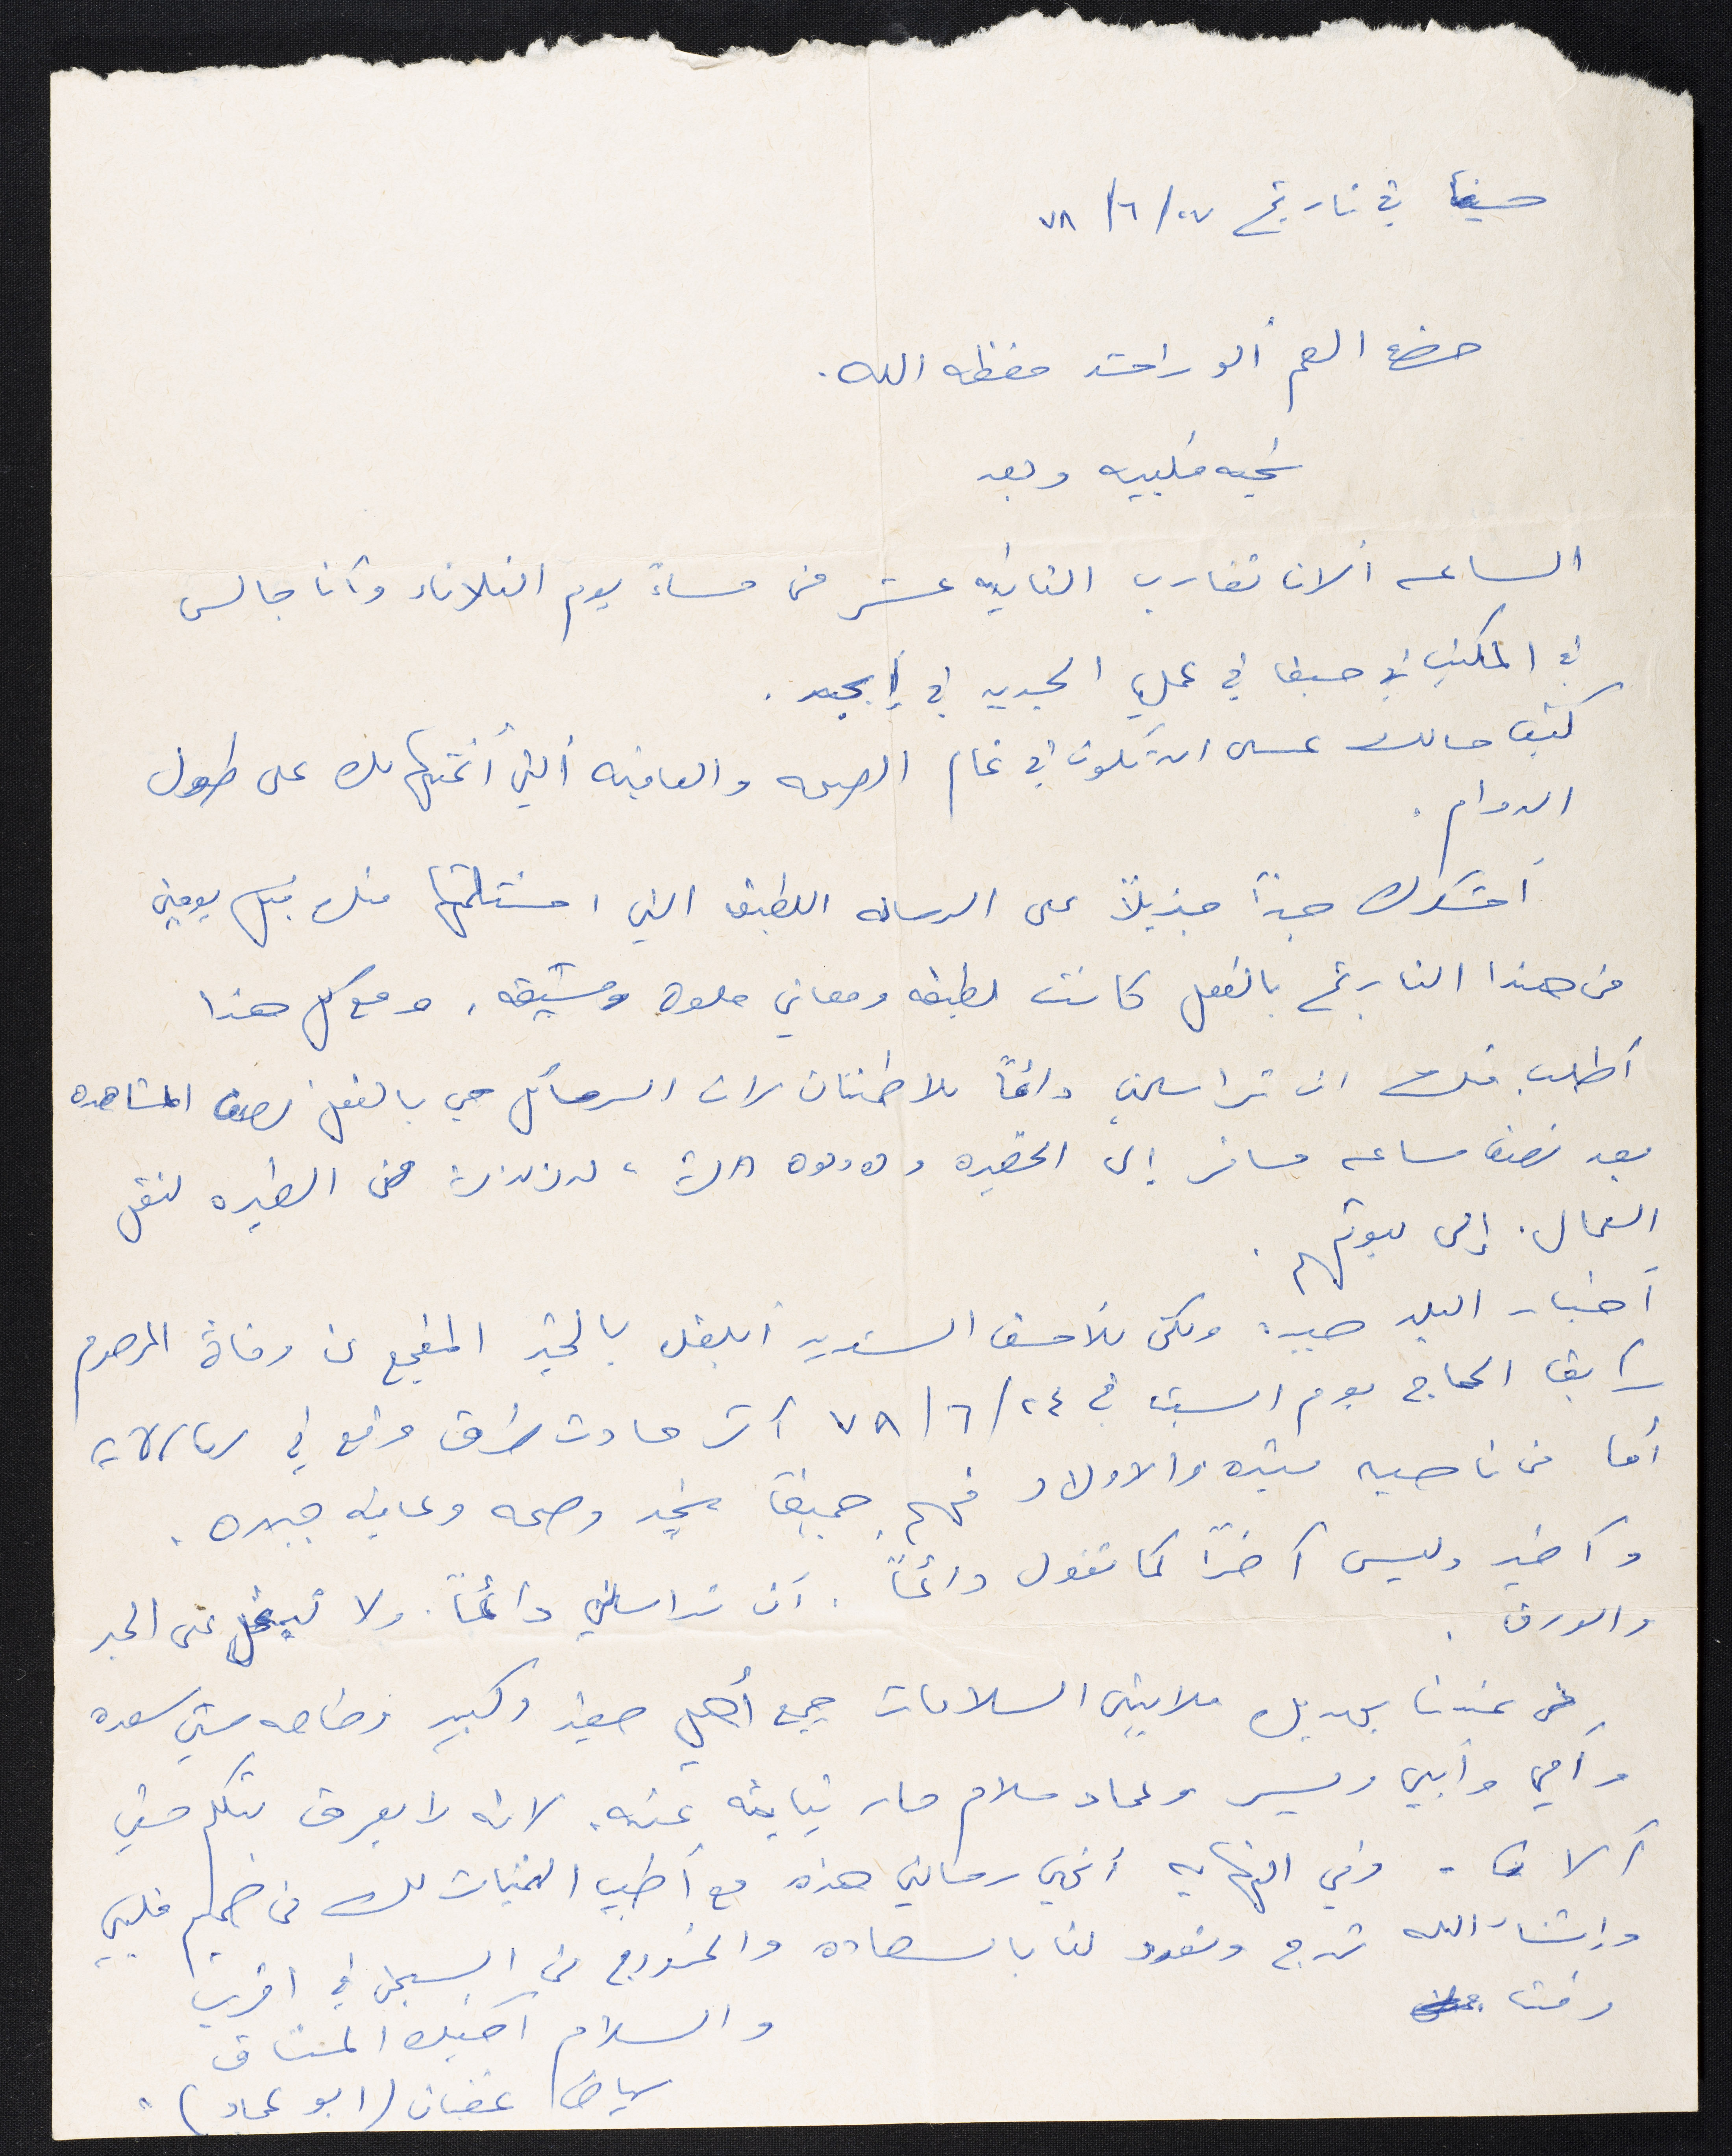 حيفا في تاريخ ٢٧/٦/٧٨
حضرة العم أبو راشد حفظه الله.
تحيه قلبيه وبعد
الساعه ألان تقارب الثانيه عشر من مساءً يوم الثلاثاء وأنا جالس
في المكتب في حيفا في عملي الجديد في إيجد.
كيف حالك عسى ان تكون في تمام الصحه والعافيه ألتي أتمنها لك على طول
الدوام.
أشكرك جداً جزيلاً على الرساله اللطيفه التي استلمتها منك قبل يومين
من هذا التاريخ بالفعل كانت لطيفه ومعاني حلوه وشيقه، ومع كل هذا
أطلب منك ان تراسلني دائماً للاطمنان لان الرسائل هي بالفعل نصف المشاهده
بعد نصف ساعه مسافر إلى الخضيره من الطيره لنقل
العمال. إلى بيوتهم.
أخبار البلد جيده ولكن للاسف الشديد أبلغك بالخبر المفجع عن وفاة المرحوم
الحاج يوم السبت في ٢٤/٦/٧٨ أثر حادث طرق وقع في
أما من ناحيه والاولاد فهم جميعاً بخير وصحه وعافيه جيده.
وأخير وليس آخراً كما تقول دائماً. أن تراسلني دائماً. ولا تبخل على الحبر
والورق.
من عندنا يهديك ملايين السلامات جميع أهلي صغير وكبير وخاصه ستي سعده
وأمي وأبي وعماد سلام حار نيابة عنه. لانه لا يعرف يتكلم حتى
ألان. وفي النهايه أنهي رسالتي هذه مع أطيب التمنيات لك من صميم قلبي
وإنشاء الله ترجع وتعود لنا بالسعاده والخروج من السجن في اقرب
وقت
والسلام أخيك المشتاق
رياض (ابو عماد).